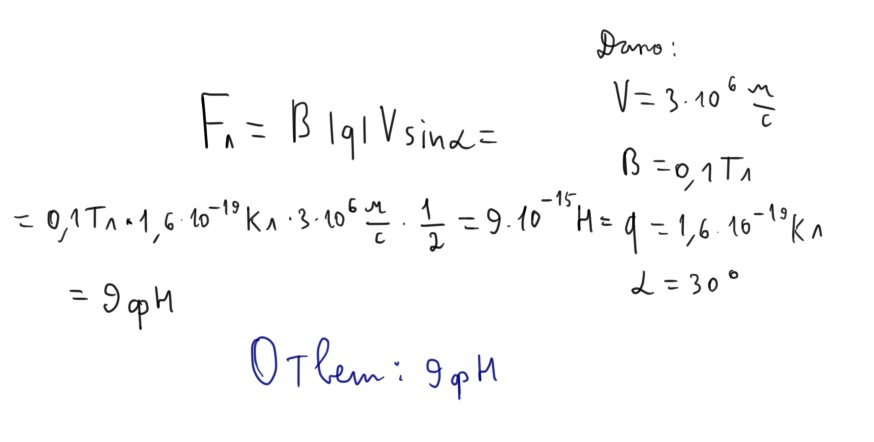 Дано:
V = 3·10⁶ м/с
B = 0,1 Тл
q = 1,6·10⁻¹⁹ Кл
α = 30°
Fл = B |q| V sinα =
= 0,1 Тл · 1,6·10⁻¹⁹ Кл · 3·10⁶ м/с · 1/2 = 9·10⁻¹⁵ Н =
= 9 фН
Ответ: 9 фН